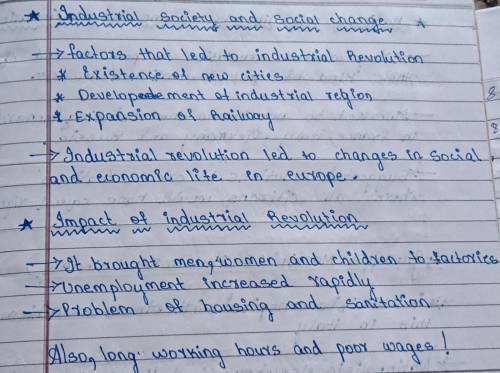 * Industrial society and social change *
→ factors that led to industrial Revolution
* Existence of new cities
* Developement of industrial region
* Expansion of Railway
→ Industrial revolution led to changes in social
and economic life in europe.
* Impact of industrial Revolution
→ It brought men, women and children to factories
→ Unemployment increased rapidly
→ Problem of housing and sanitation
Also, long working hours and poor wages!